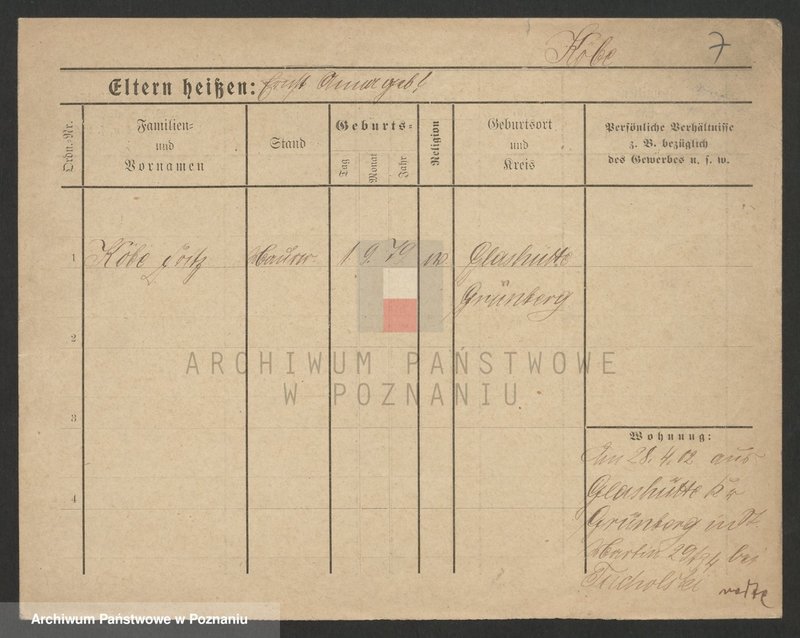 Köbe 7
Eltern heißen: Ernst Anna geb?
Ordn.-Nr.
Familien=
und
Vornamen
Stand
Geburts=
Tag
Monat
Jahr
Religion
Geburtsort
und
Kreis
Persönliche Verhältnisse
z. B. bezüglich
des Gewerbes u. s. w.
1 Köbe Fritz Maurer 1 9 79 Glashütte
Grünberg
2
ARCHIWUM PAŃSTWOWE
W POZNANIU
3
4
Wohnung:
Am 28.4.02 aus
Glashütte Kr
Grünberg in St.
Martin 29 bei
Tucholski
Archiwum Państwowe w Poznaniu